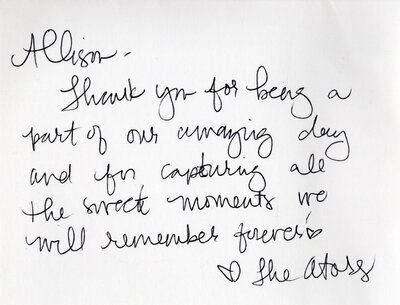 Allison -
Thank you for being a
part of our amazing day
and for capturing all
the sweet moments we
will remember forever!♡
♡ The Atoss